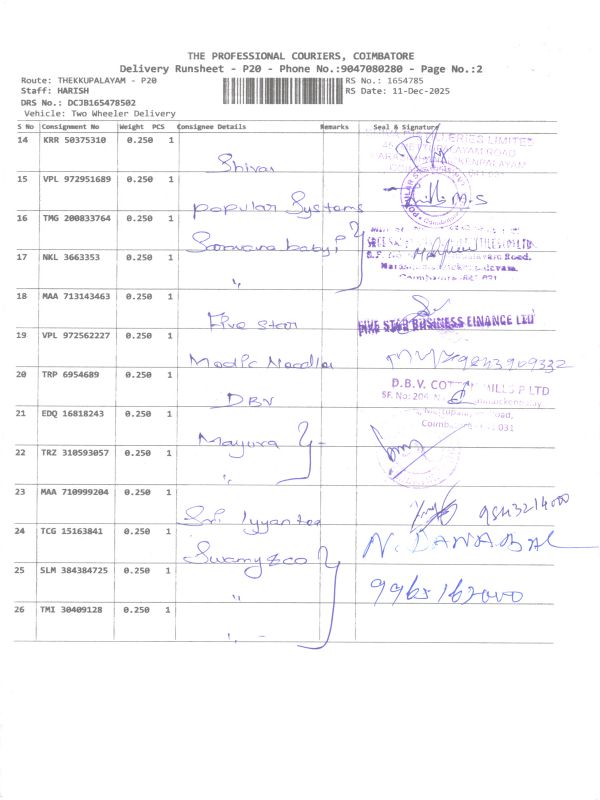 THE PROFESSIONAL COURIERS, COIMBATORE
Delivery Runsheet - P20 - Phone No.:9047080280 - Page No.:2
Route: THEKKUPALAYAM - P20 RS No.: 1654785
Staff: HARISH RS Date: 11-Dec-2025
DRS No.: DCJB165478502
Vehicle: Two Wheeler Delivery
S No Consignment No Weight PCS Consignee Details Remarks Seal & Signature
14 KRR 50375310 0.250 1
Shivai
15 VPL 972951689 0.250 1
Popular Systems M.S
16 TMG 200833764 0.250 1
17 NKL 3663353 0.250 1
"
18 MAA 713143463 0.250 1
Five star FIVE STAR BUSINESS FINANCE LTD
19 VPL 972562227 0.250 1
20 TRP 6954689 0.250 1
DBV D.B.V. COTTON MILLS P LTD
21 EDQ 16818243 0.250 1
Mayura
22 TRZ 310593057 0.250 1
"
23 MAA 710999204 0.250 1
Sri
24 TCG 15163841 0.250 1
Swamy & co
25 SLM 384384725 0.250 1
"
26 TMI 30409128 0.250 1
"